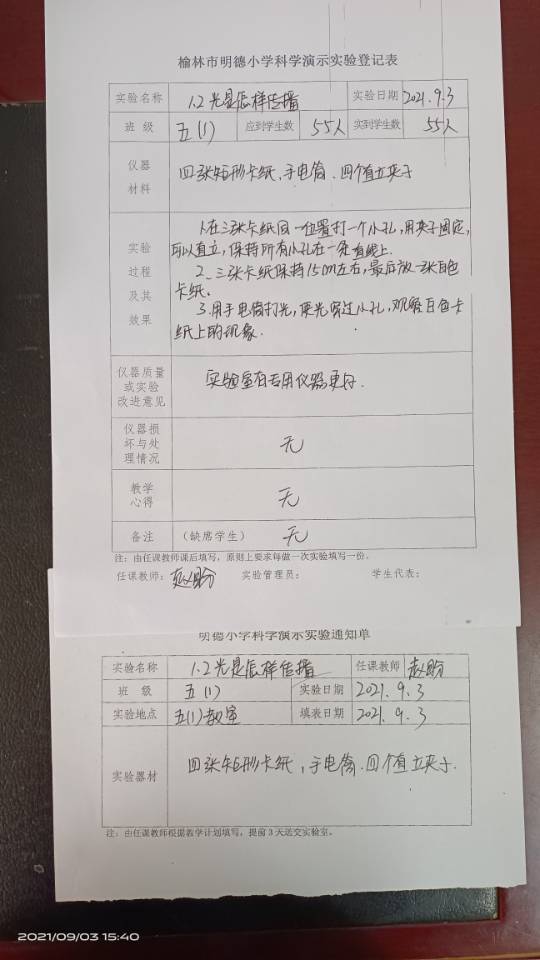 榆林市明德小学科学演示实验登记表
实验名称 1.2光是怎样传播 实验日期 2021.9.3
班 级 五(1) 应到学生数 55人 实到学生数 55人
仪器
材料
四张矩形卡纸、手电筒、四个直立夹子
实验
过程
及其
效果
1.在三张卡纸同一位置打一个小孔,用夹子固定,
可以直立,保持所有小孔在一条直线上.
2、三张卡纸保持15cm左右,最后放一张白色
卡纸.
3.用手电筒打光,使光穿过小孔,观察白色卡
纸上的现象.
仪器质量
或实验
改进意见
实验室有专用仪器更好.
仪器损
坏与处
理情况
无
教学
心得
无
备注 (缺席学生) 无
注:由任课教师课后填写,原则上要求每做一次实验填写一份。
任课教师: 赵盼 实验管理员: 学生代表:
明德小学科学演示实验通知单
实验名称 1.2光是怎样传播 任课教师 赵盼
班 级 五(1) 实验日期 2021.9.3
实验地点 五(1)教室 填表日期 2021.9.3
实验器材 四张矩形卡纸,手电筒.四个直立夹子.
注:由任课教师根据教学计划填写,提前3天送交实验室。
2021/09/03 15:40